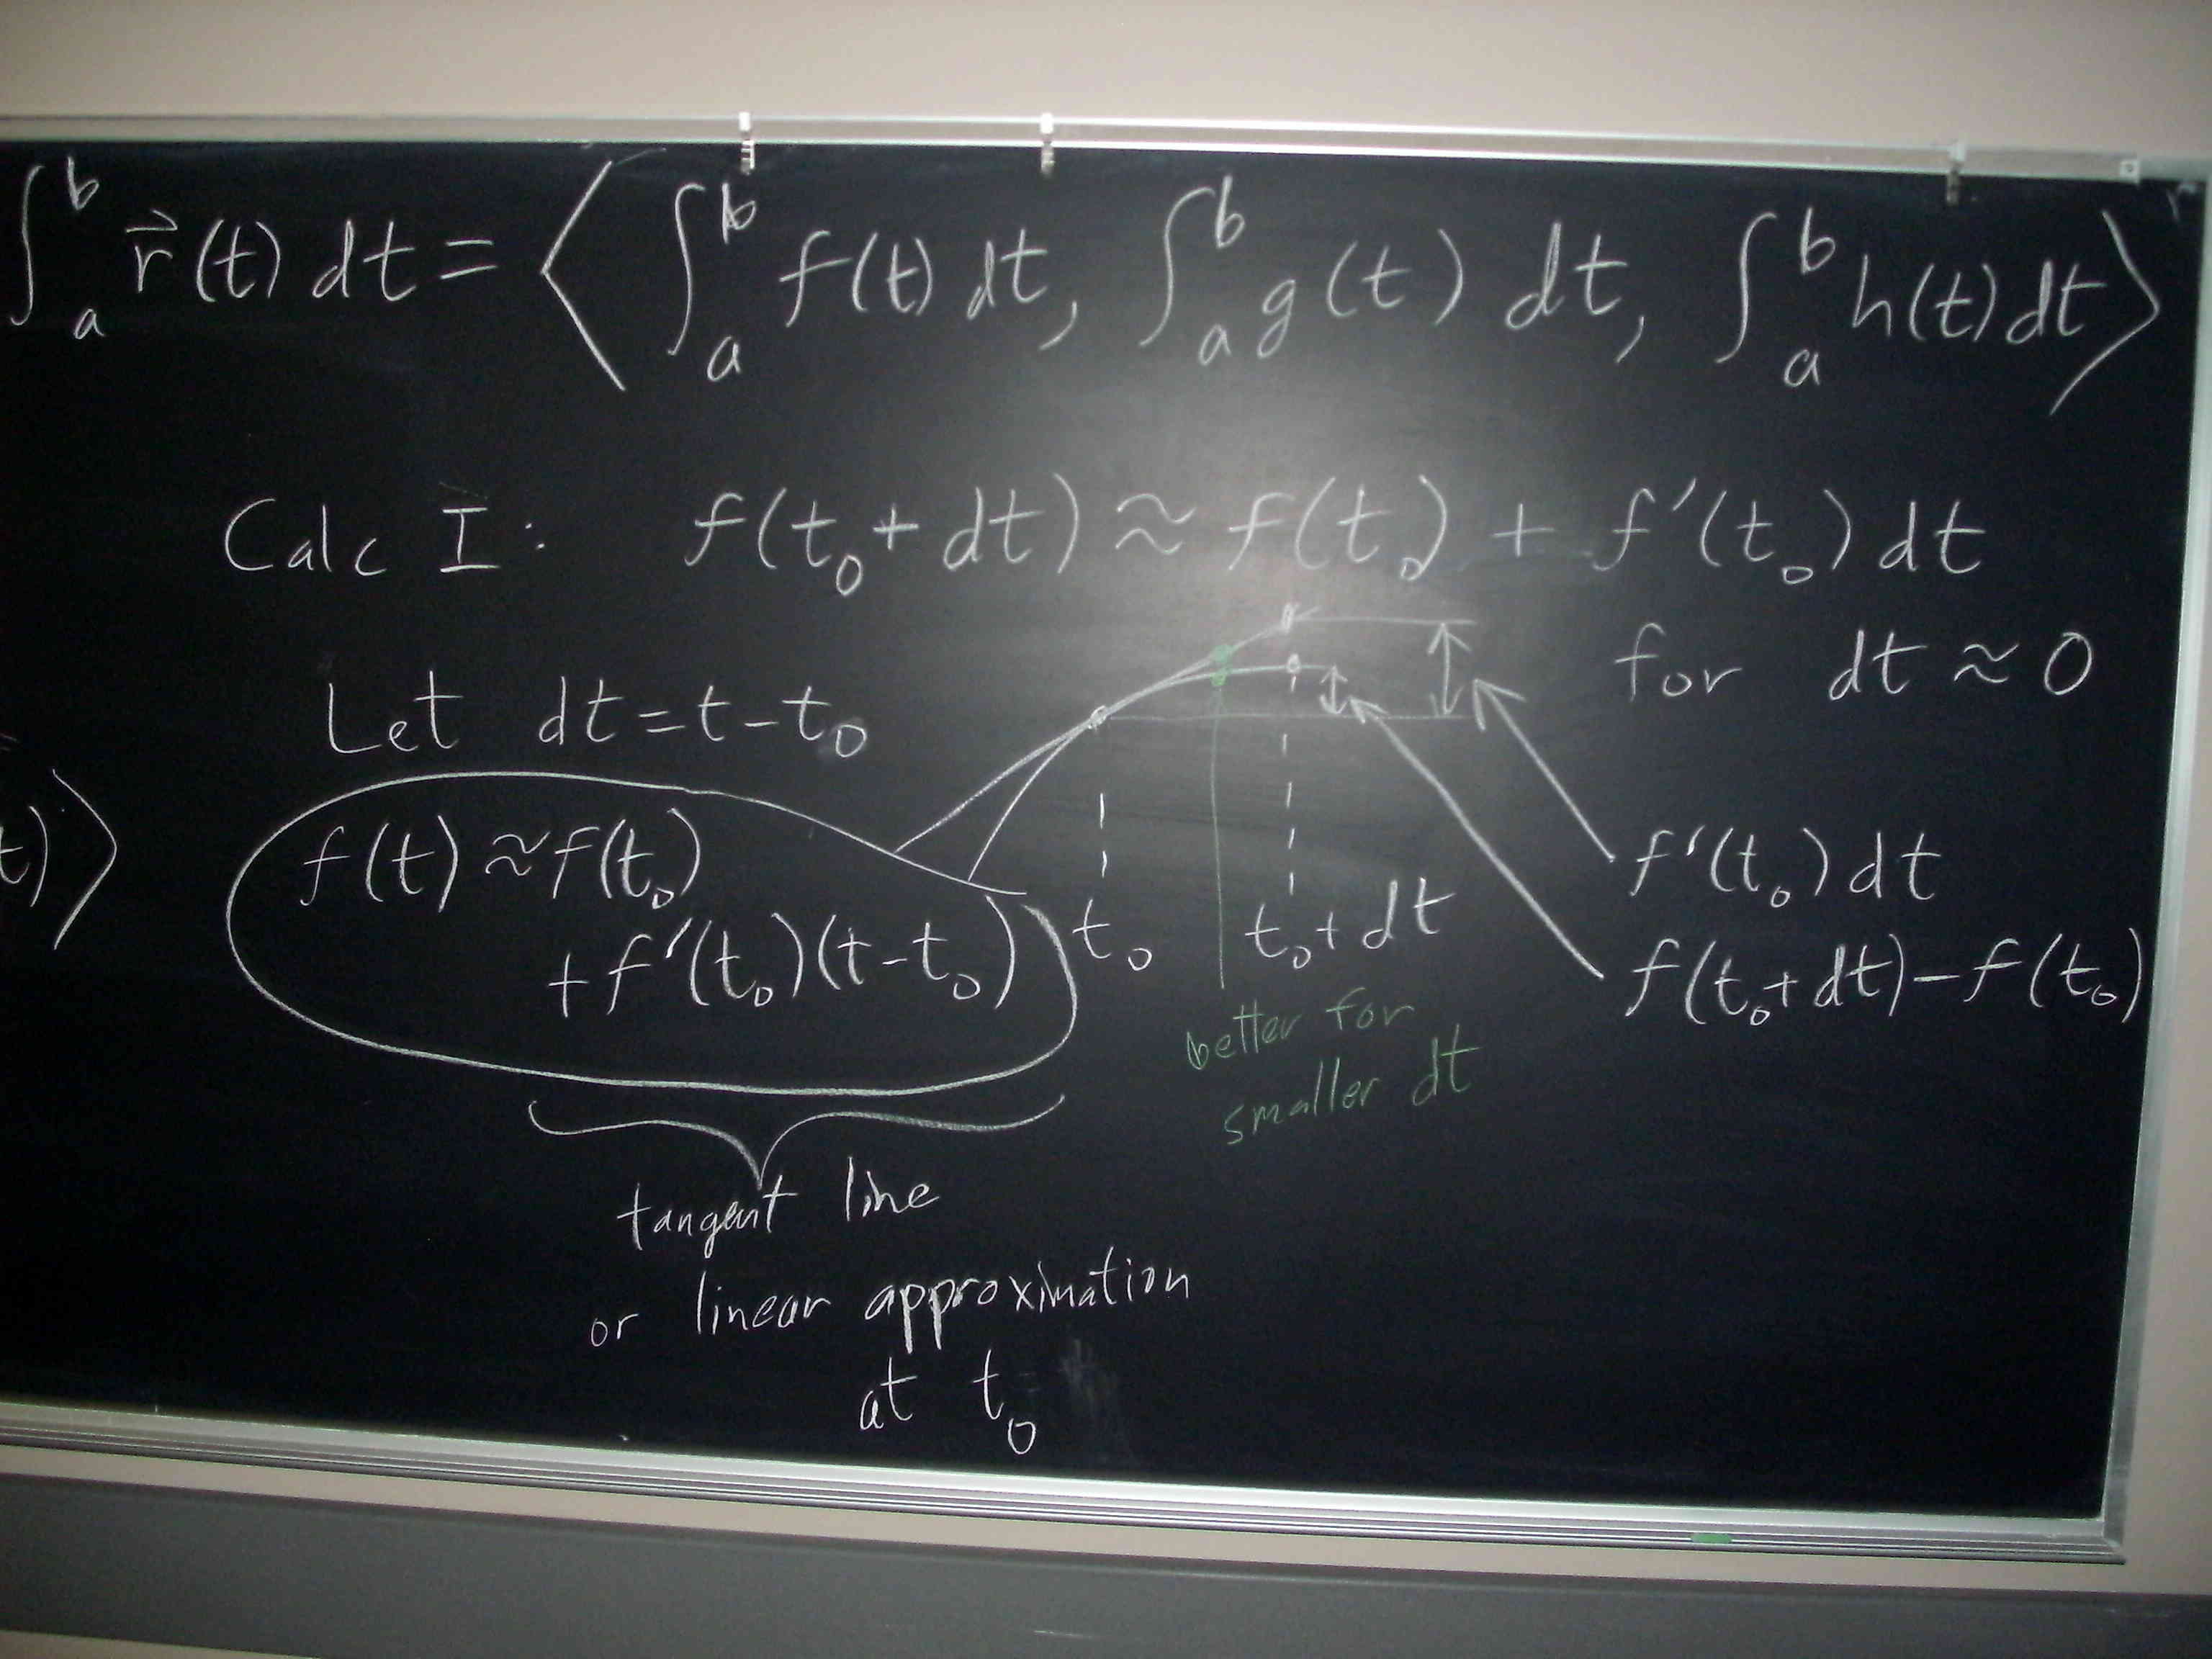 ∫_a^b r⃗(t) dt = ⟨ ∫_a^b f(t) dt, ∫_a^b g(t) dt, ∫_a^b h(t) dt ⟩
Calc I: f(t₀+dt) ≈ f(t₀) + f'(t₀) dt
for dt ≈ 0
Let dt = t - t₀
t)⟩
f(t) ≈ f(t₀)
+ f'(t₀)(t - t₀)
t₀ t₀+dt
f'(t₀) dt
f(t₀+dt) - f(t₀)
better for
smaller dt
tangent line
or linear approximation
at t₀